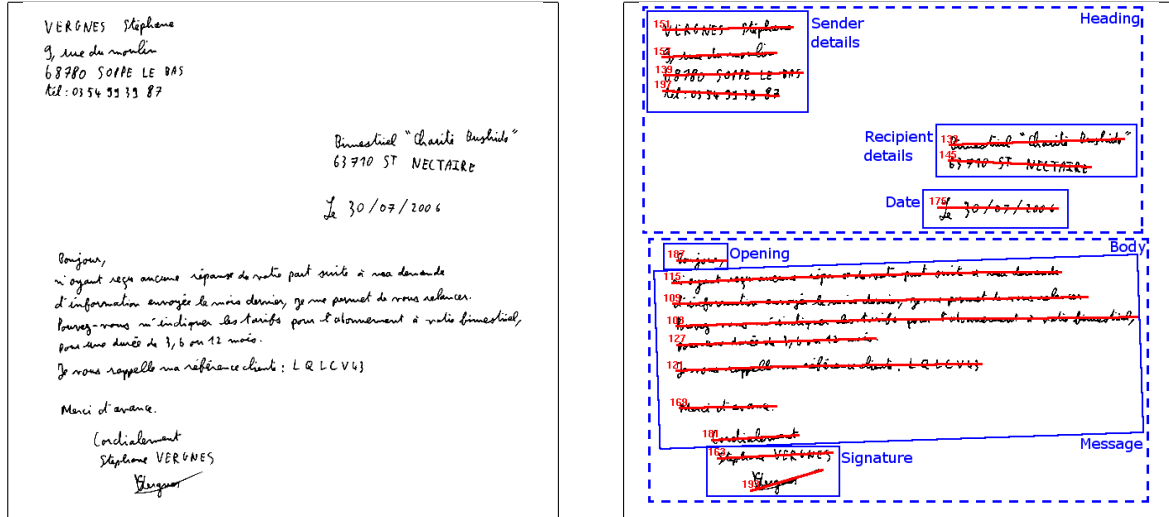 VERGNES Stéphane
9, rue du moulin
68780 SOPPE LE BAS
tél : 03 54 99 39 87
Bimestriel "Charité Bushido"
63710 ST NECTAIRE
Le 30/07/2006
Bonjour,
n'ayant reçu aucune réponse de votre part suite à ma demande
d'information envoyée le mois dernier, je me permet de vous relancer.
Pouvez-vous m'indiquer les tarifs pour l'abonnement à votre bimestriel,
pour une durée de 3, 6 ou 12 mois.
Je vous rappelle ma référence cliente : LQLCV43
Merci d'avance.
Cordialement
Stéphane VERGNES
Vergnes
Heading
151 VERGNES Stéphane
Sender
details
157 9, rue du moulin
139 68780 SOPPE LE BAS
197 tél : 03 54 99 39 87
Recipient
details
133 Bimestriel "Charité Bushido"
145 63710 ST NECTAIRE
Date
175 Le 30/07/2006
Body
187 Bonjour,
Opening
115 n'ayant reçu aucune réponse de votre part suite à ma demande
109 d'information envoyée le mois dernier, je me permet de vous relancer.
103 Pouvez-vous m'indiquer les tarifs pour l'abonnement à votre bimestriel,
127 pour une durée de 3, 6 ou 12 mois.
121 Je vous rappelle ma référence cliente : LQLCV43
169 Merci d'avance.
181 Cordialement
Message
163 Stéphane VERGNES
Signature
Vergnes